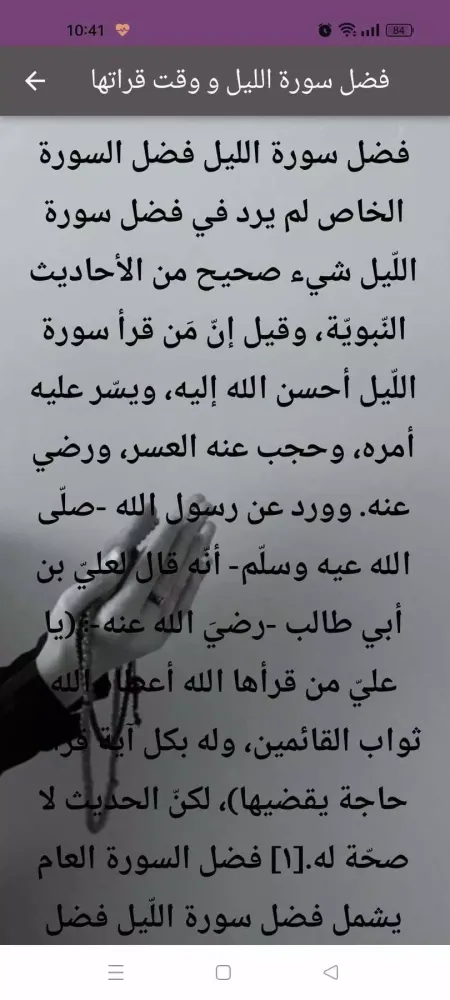 10:41
84
فضل سورة الليل و وقت قراتها
فضل سورة الليل فضل السورة
الخاص لم يرد في فضل سورة
اللّيل شيء صحيح من الأحاديث
النّبويّة، وقيل إنّ مَن قرأ سورة
اللّيل أحسن الله إليه، ويسّر عليه
أمره، وحجب عنه العسر، ورضي
عنه. وورد عن رسول الله -صلّى
الله عيه وسلّم- أنّه قال لعليّ بن
أبي طالب -رضيَ الله عنه-: (يا
عليّ من قرأها الله أعطاه الله
ثواب القائمين، وله بكل آية
حاجة يقضيها)، لكنّ الحديث لا
صحّة له.[١] فضل السورة العام
يشمل فضل سورة اللّيل فضل